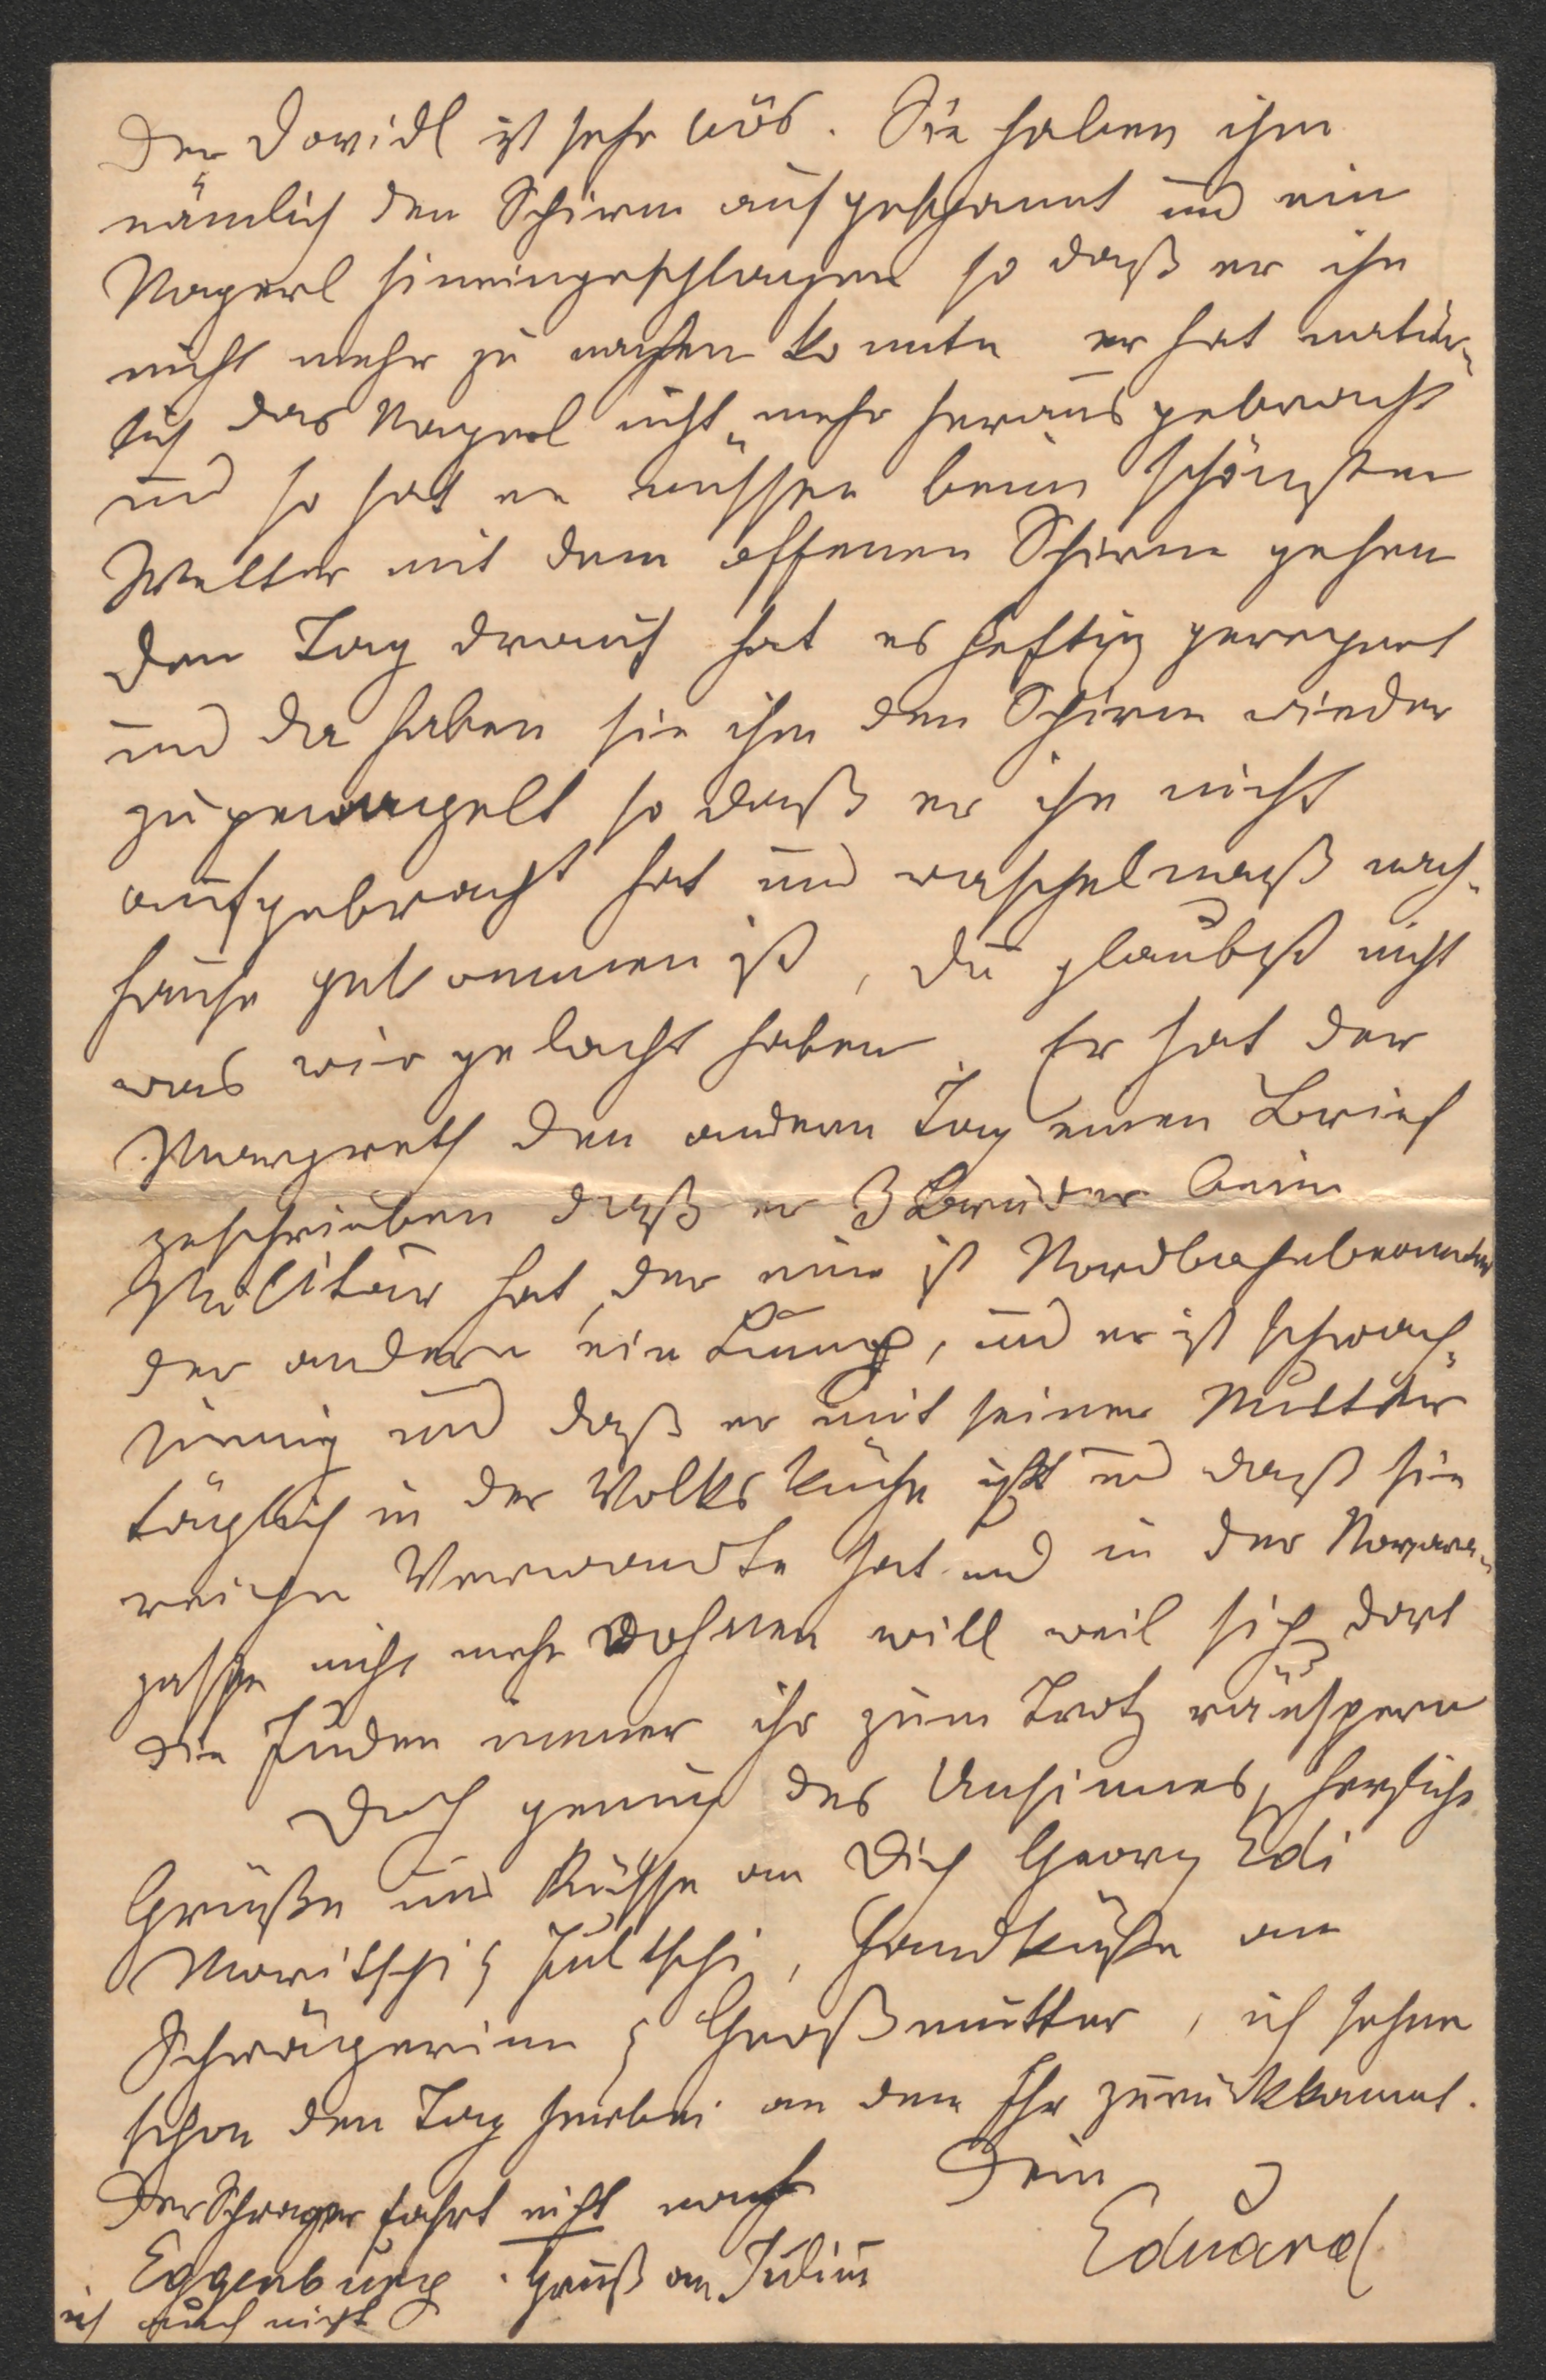 Der Dovidl ist sehr bös. Sie haben ihm
nämlich den Schirm aufgespannt und ein
Nagerl hineingeschlagen so daß er ihn
nicht mehr zu machen konnte er hat natür-
lich das Nagerl nicht mehr heraus gebracht
und so hat er müssen beim schönsten
Wetter mit dem offenen Schirm gehen
Den Tag drauf hat es heftig geregnet
und da haben sie ihm den Schirm wieder
zugenagelt so daß er ihn nicht
aufgebracht hat und waschelnaß nach-
hause gekommen ist, du glaubst nicht
was wir gelacht haben. Er hat der
Margreth den andern Tag einen Brief
geschrieben daß er 3 Brüder beim
Militär hat, der eine ist Nordbahnbeamter
der andere ein Lump, und er ist schwach-
sinnig und daß er mit seiner Mutter
täglich in der Volksküche ißt und daß sie
reiche Verwandte hat und in der Novara-
gasse nicht mehr wohnen will weil sich dort
die Juden immer ihr zum Trotz räuspern
Doch genug des Unsinnes, herzliche
Grüße und Küsse an Dich Georg Edi
Moritschi & Jultschi, Handküsse an
Schwägerinn & Großmutter, ich sehne
schon den Tag herbei an dem Ihr zurückkommt.
Dein
Eduard
Der Schwager fahrt nicht nach
Eggenburg. Gruß an
ich auch nicht